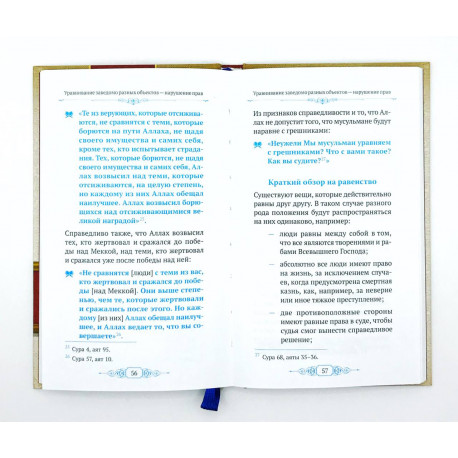 Уравнивание заведомо разных объектов — нарушение прав
«Те из верующих, которые отсижива-
ются, не сравнятся с теми, которые
борются на пути Аллаха, не щадя
своего имущества и самих себя,
кроме тех, кто испытывает страда-
ния. Тех, которые борются, не щадя
своего имущества и самих себя, Ал-
лах возвысил над теми, которые
отсиживаются, на целую степень,
но каждому из них Аллах обещал
наилучшее. Аллах возвысил борющих-
ся над отсиживающимися вели-
кой наградой»
Справедливо также, что Аллах возвысил
тех, кто жертвовал и сражался до побе-
ды над Меккой, над теми, кто жертвовал
и сражался уже после победы над ней:
«Не сравнятся [люди] с теми из вас,
кто жертвовал и сражался до побе-
ды [над Меккой]. Они выше степе-
нью, чем те, которые жертвовали
и сражались после этого. Но каж-
дому [из них] Аллах обещал наилуч-
шее, и Аллах ведает о том, что вы со-
вершаете»
Сура 4, аят 95.
Сура 57, аят 10.
56
Уравнивание заведомо разных объектов — нарушение прав
Из признаков справедливости и то, что Ал-
лах не допустит того, что мусульмане будут
наравне с грешниками:
«Неужели Мы мусульман уравняем
с грешниками? Что с вами такое?
Как вы судите?»
Краткий обзор на равенство
Существуют вещи, которые действительно
равны друг другу. В таком случае разного
рода положения будут распространяться
на них одинаково, например:
— люди равны между собой в том,
что все являются творениями и ра-
бами Всевышнего Господа;
— абсолютно все люди имеют право
на жизнь, за исключением случа-
ев, когда предусмотрена смертная
казнь, как, например, за неверие
или иное тяжкое преступление;
— две противоположные стороны
имеют равные права в суде, чтобы
судья смог вынести справедливое
решение;
Сура 68, аяты 35–36.
57